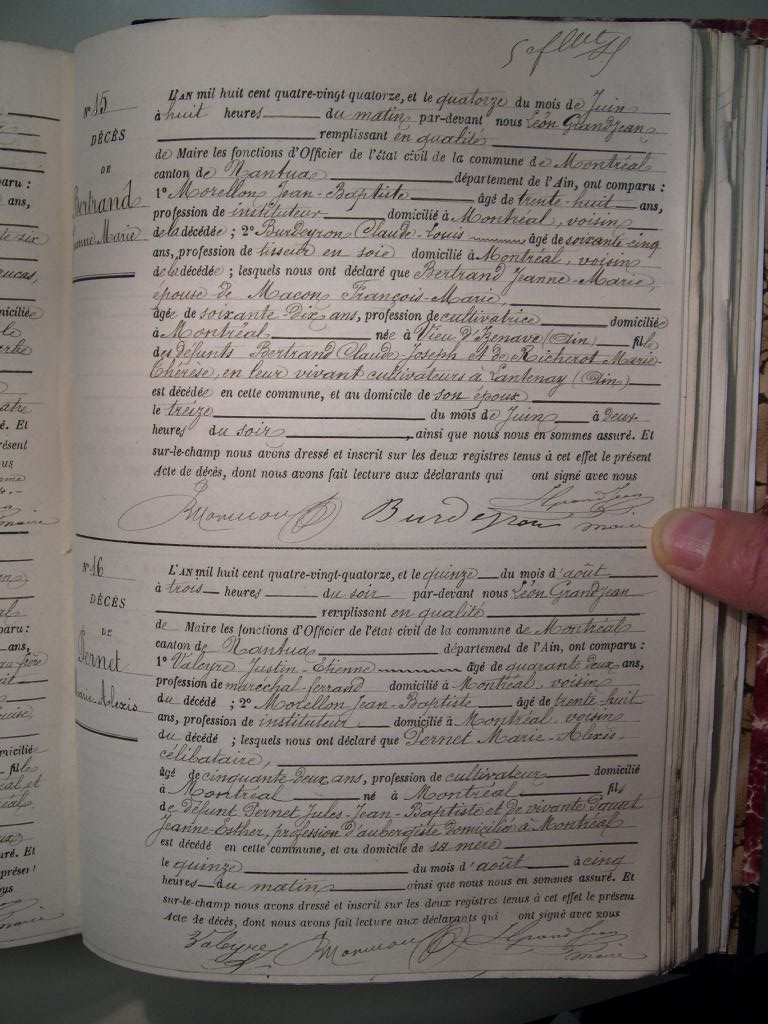 N° 15
DÉCÈS
DE
Bertrand
Jeanne Marie
L'AN mil huit cent quatre-vingt quatorze, et le quatorze du mois de Juin
à huit heures du matin par-devant nous Léon Grandjean
remplissant en qualité
de Maire les fonctions d'Officier de l'état civil de la commune de Montréal
canton de Nantua département de l'Ain, ont comparu :
1° Morellon Jean-Baptiste âgé de trente-huit ans,
profession de instituteur domicilié à Montréal, voisin
de la décédée ; 2° Burdeyron Claude-Louis âgé de soixante cinq
ans, profession de tisseur en soie domicilié à Montréal, voisin
de la décédée ; lesquels nous ont déclaré que Bertrand Jeanne-Marie,
épouse de Macon François-Marie,
âgée de soixante-dix ans, profession de cultivatrice domiciliée
à Montréal née à Vieu d'Izenave (Ain) fille
des défunts Bertrand Claude-Joseph et de Richerot Marie-
Thérèse, en leur vivant cultivateurs à Lantenay (Ain)
est décédée en cette commune, et au domicile de son époux
le treize du mois de Juin à deux
heures du soir, ainsi que nous nous en sommes assuré. Et
sur-le-champ nous avons dressé et inscrit sur les deux registres tenus à cet effet le présent
Acte de décès, dont nous avons fait lecture aux déclarants qui ont signé avec nous
Burdeyron
maire
N° 16
DÉCÈS
DE
Pernet
Marie Alexis
L'AN mil huit cent quatre-vingt-quatorze, et le quinze du mois d'août
à trois heures du soir par-devant nous Léon Grandjean
remplissant en qualité
de Maire les fonctions d'Officier de l'état civil de la commune de Montréal
canton de Nantua département de l'Ain, ont comparu :
1° Valeyre Justin-Etienne âgé de quarante deux ans,
profession de maréchal-ferrand domicilié à Montréal, voisin
du décédé ; 2° Morellon Jean-Baptiste âgé de trente-huit
ans, profession de instituteur domicilié à Montréal, voisin
du décédé ; lesquels nous ont déclaré que Pernet Marie-Alexis
célibataire,
âgé de cinquante-deux ans, profession de cultivateur domicilié
à Montréal né à Montréal fils
de défunt Pernet Jules-Jean-Baptiste et de vivante
Jeanne-Esther, profession d'aubergiste domicilié à Montréal
est décédé en cette commune, et au domicile de sa mère
le quinze du mois d'août à cinq
heures du matin ainsi que nous nous en sommes assuré. Et
sur-le-champ nous avons dressé et inscrit sur les deux registres tenus à cet effet le présent
Acte de décès, dont nous avons fait lecture aux déclarants qui ont signé avec nous
Valeyre
maire